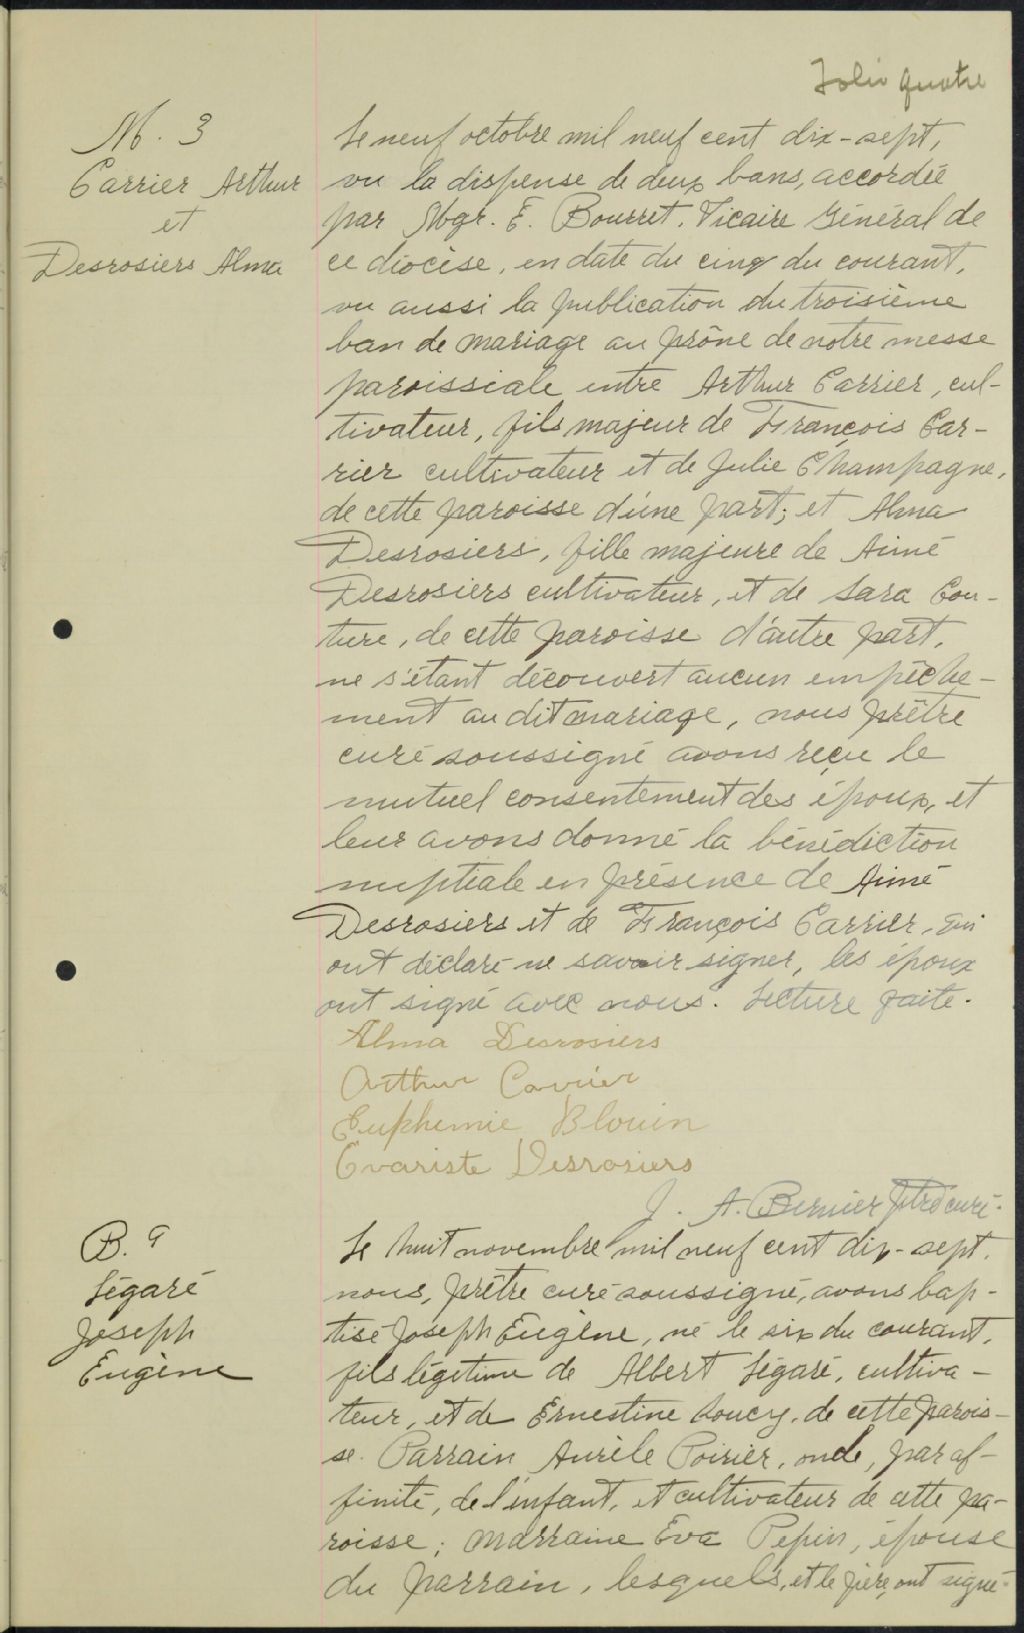 Folio quatre
M. 3
Carrier Arthur
et
Desrosiers Alma
Le neuf octobre mil neuf cent dix-sept,
vu la dispense de deux bans, accordée
par Mgr. E. Bourret, Vicaire Général de
ce diocèse, en date du cinq du courant,
vu aussi la publication du troisième
ban de mariage au prône de notre messe
paroissiale entre Arthur Carrier, cul-
tivateur, fils majeur de François Car-
rier cultivateur et de Julie Champagne,
de cette paroisse d'une part; et Alma
Desrosiers, fille majeure de Aimé
Desrosiers cultivateur, et de Sara Cou-
ture, de cette paroisse d'autre part,
ne s'étant découvert aucun empêche-
ment au dit mariage, nous prêtre
curé soussigné avons reçu le
mutuel consentement des époux, et
leur avons donné la bénédiction
nuptiale en présence de Aimé
Desrosiers et de François Carrier, qui
ont déclaré ne savoir signer, les époux
ont signé avec nous. Lecture faite.
Alma Desrosiers
Arthur Carrier
Euphemie Blouin
Evariste Desrosiers
J. A. Bernier Ptre curé.
B. 9
Légaré
Joseph
Eugène
Le huit novembre mil neuf cent dix-sept,
nous, prêtre curé soussigné, avons bap-
tisé Joseph Eugène, né le six du courant,
fils légitime de Albert Légaré, cultiva-
teur, et de Ernestine Roucy, de cette parois-
se. Parrain Aurèle Poirier, oncle, par af-
finité, de l'enfant, et cultivateur de cette pa-
roisse; marraine Eva Pepin, épouse
du parrain, lesquels, et le père, ont signé